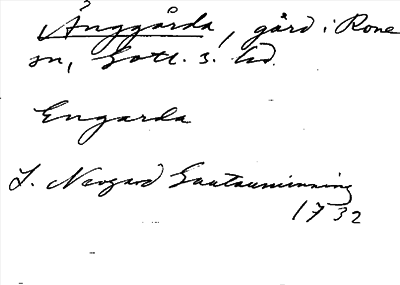 Änggårda, gård i Rone
sn, Gotl. s. hd.
Engarda
L. Neogard Gautauminning
1732